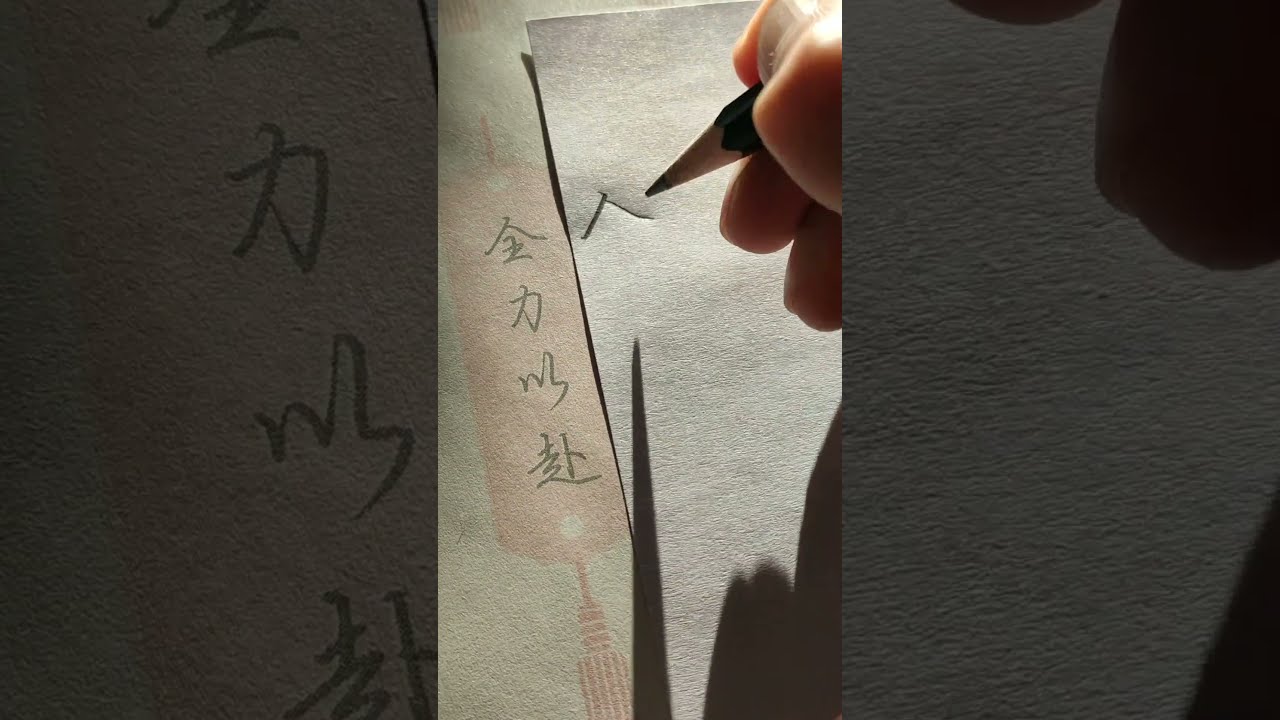 全力以赴
人